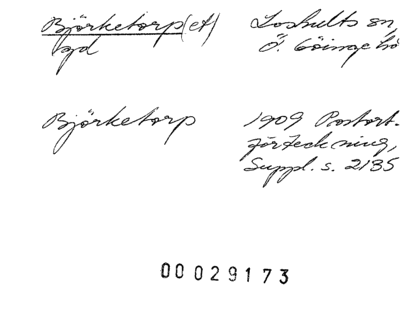 Björketorp(et) Loshults sn,
tgd Ö. Göinge hd
Björketorp 1909 Postort.
förteckning,
Suppl. s. 2135
00029173